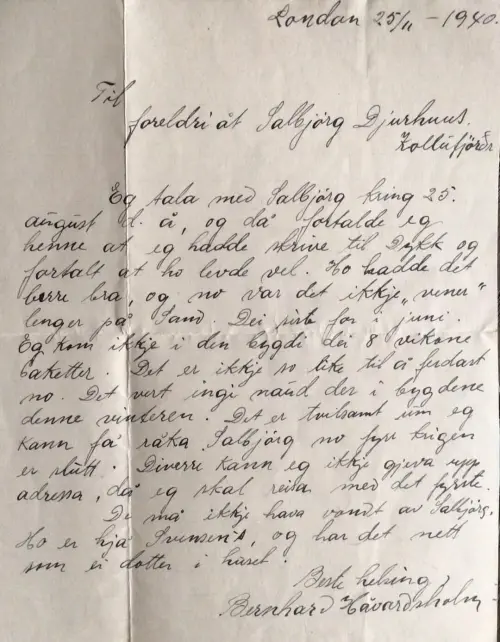 London 25/11 – 1940.
Til
foreldri åt Salbjörg Djurhuus.
Kollufjördr
Eg tala med Salbjörg kring 25.
august d. å, og då fortalde eg
henne at eg hadde skrive til Dykk og
fortalt at ho levde vel. Ho hadde det
berre bra, og no var det ikkje „vener"
lenger på Sand. Dei siste for i juni.
Eg kom ikkje i den bygdi dei 8 vikone
baketter. Det er ikkje so like til å ferdast
no. Det vert ingi naud der i bygdene
denne vinteren. Det er tvilsamt um eg
kann få råka Salbjörg no fyrr krigen
er slutt. Diverre kann eg ikkje gjeva upp
adressa, då eg skal reisa med det fyrste.
De må ikkje hava vondt av Salbjörg.
Ho er hjå Svensens, og har det nett
som ei dotter i huset.
Beste helsing,
Bernhard Håvardsholm